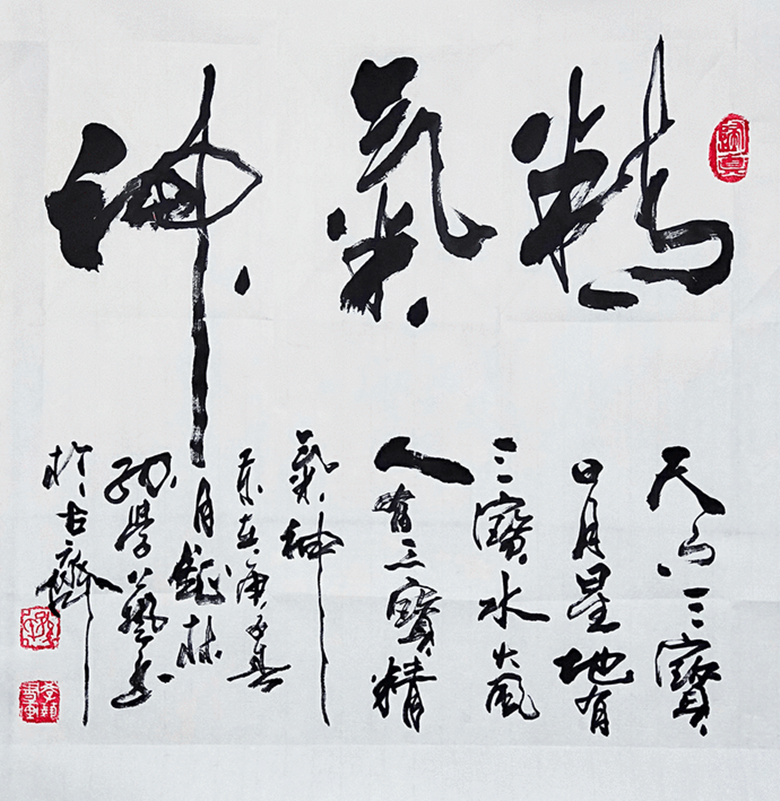 精氣神
天有三寶
日月星地有
三寶水火風
人有三寶精
氣神
歲在庚子暮
月龍林
孫學藝書
於古齊